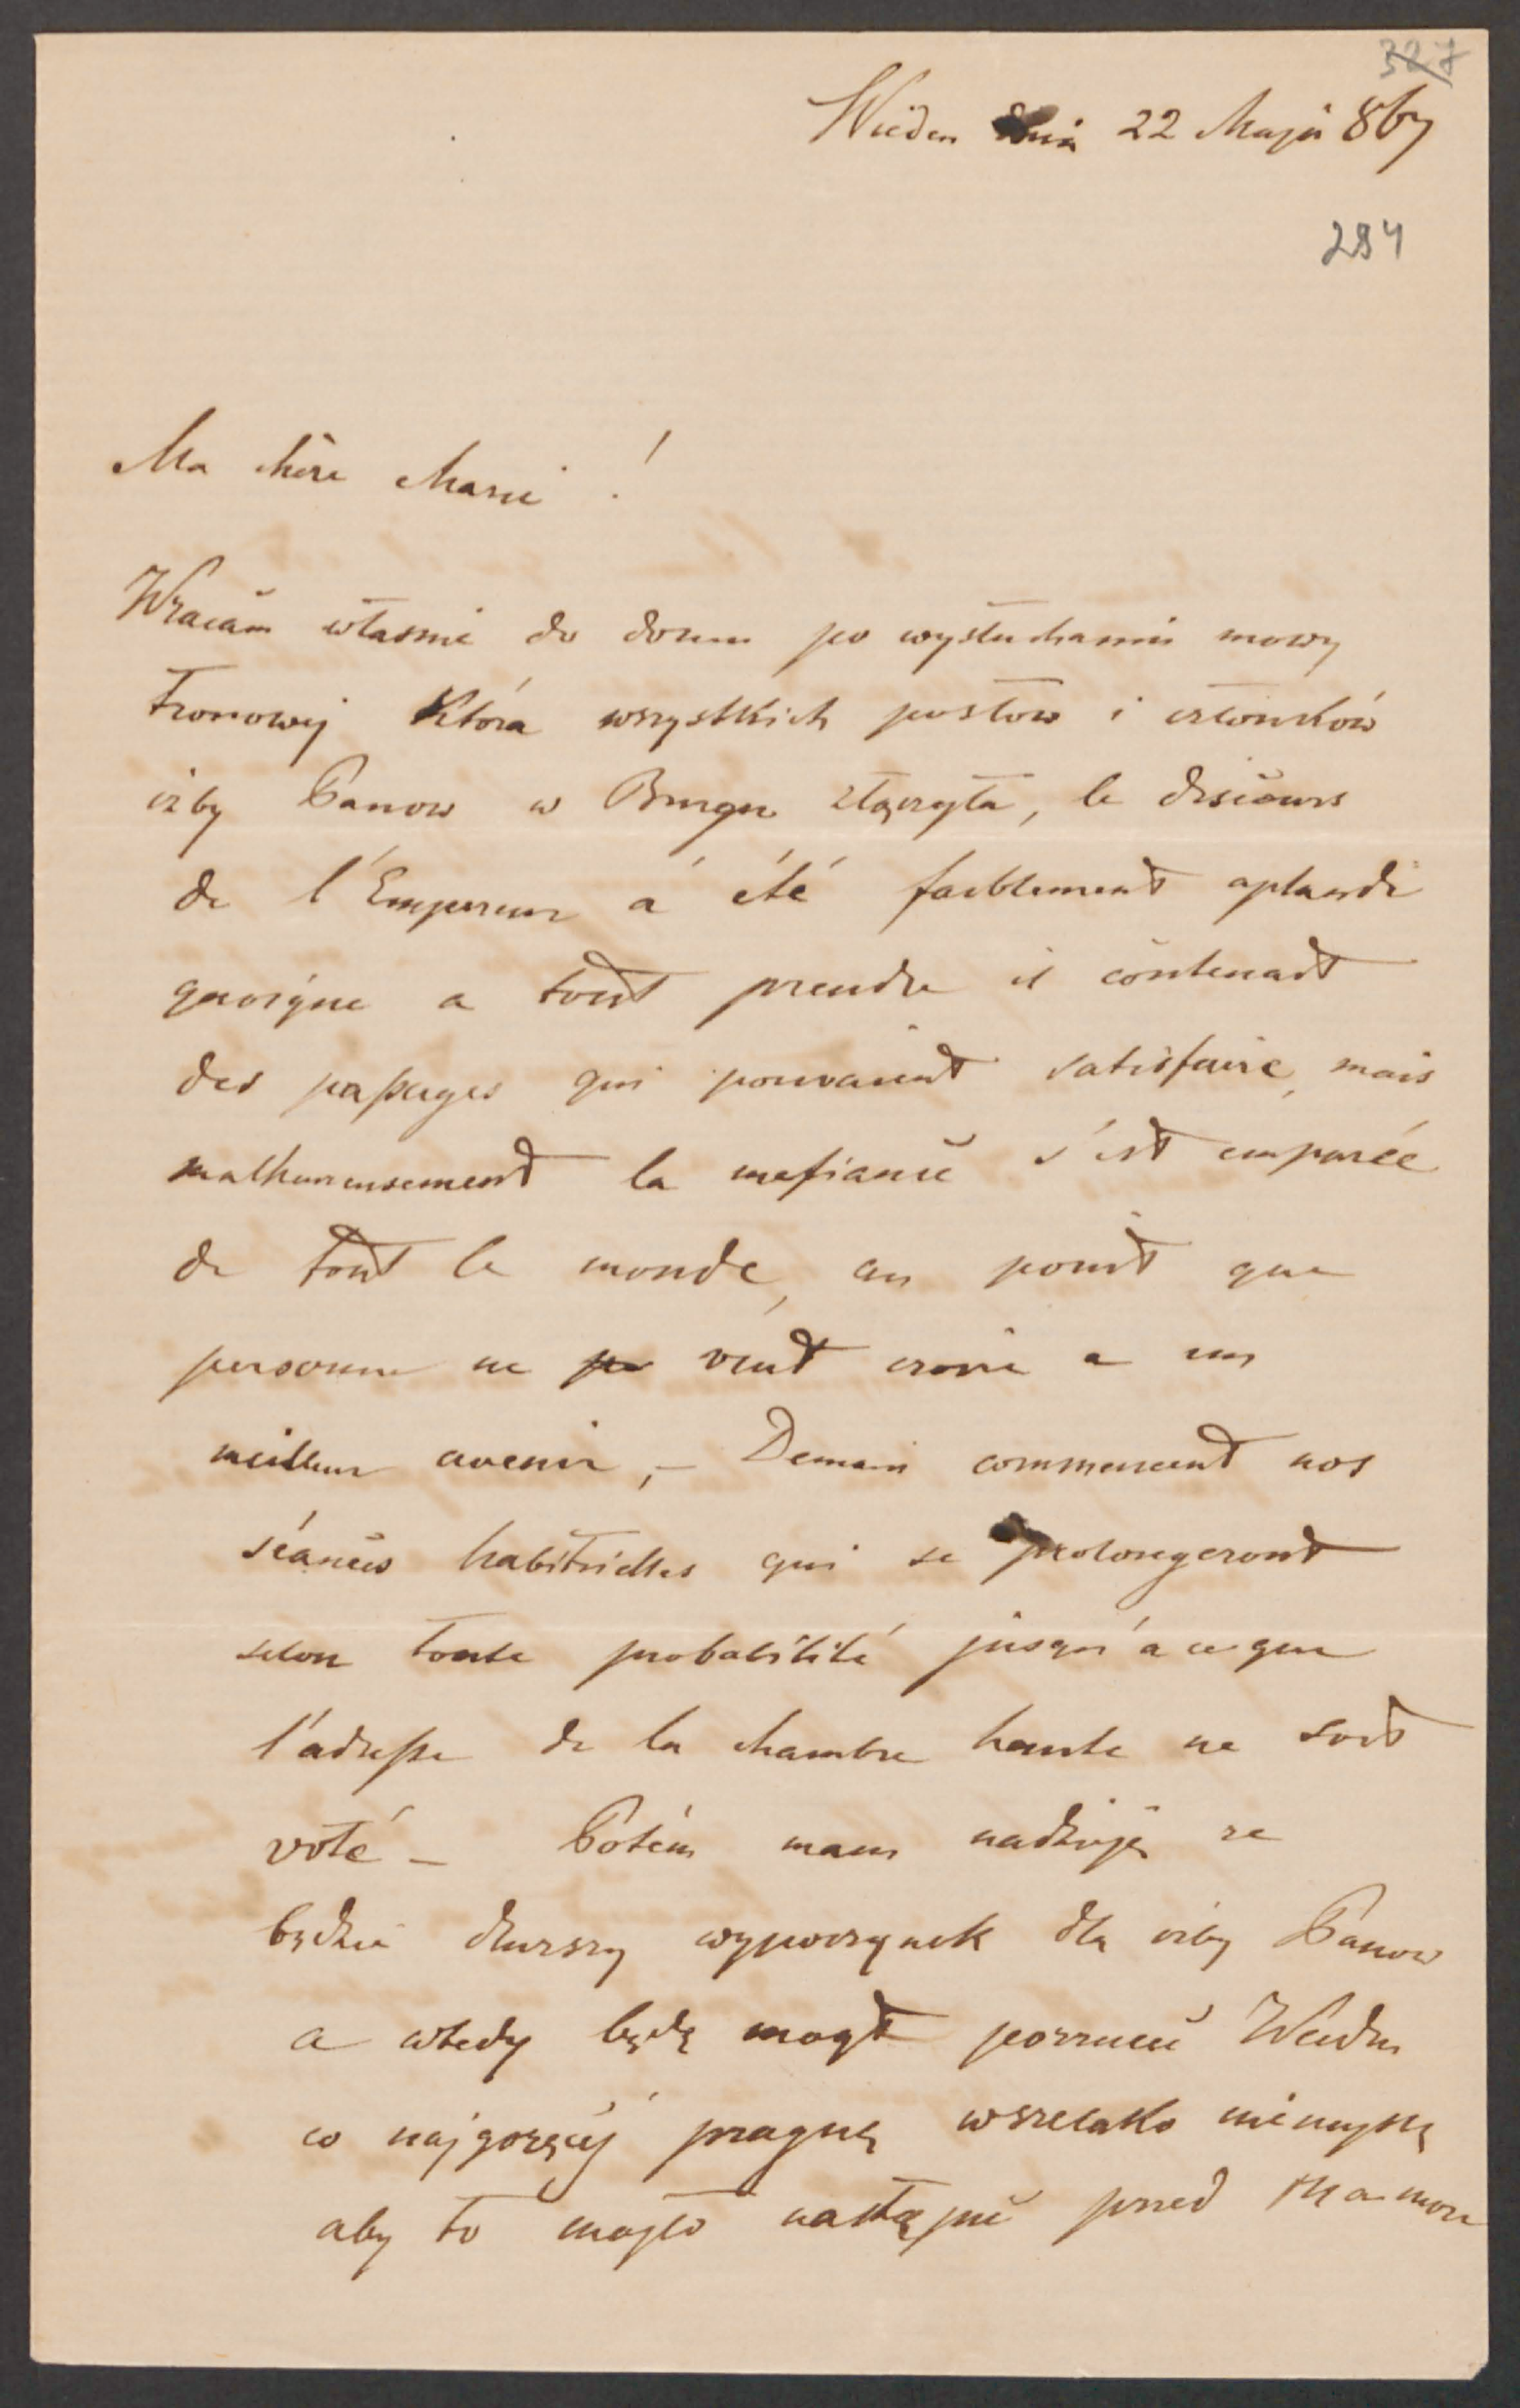 327
Wieden dnia 22 Maja 867
294
Ma chère Marie !
Wracam właśnie do domu po wysłuchaniu mowy
tronowej która wszystkich posłow i członków
izby Panow w Burgu złączyła, le discours
de l'Empereur a été faiblement aplaudi
quoique a tout prendre il contenait
des passages qui pouvaient satisfaire, mais
malheureusement la mefiance s'est emparée
de tout le monde, au point que
personne ne pe veut croire a un
meilleur avenir, – Demain commencent nos
séances habituelles qui se prolongeront
selon toute probabilité jusqu'a ce que
l'adresse de la chambre haute ne soit
voté – Potém mam nadzieję ze
będzie dłurszy wypoczynek dla izby Panow
a wtedy będę mogł porzucić Wieden
co najgoręcéj pragnę wszelako niemyślę
aby to mogło nastąpić przed